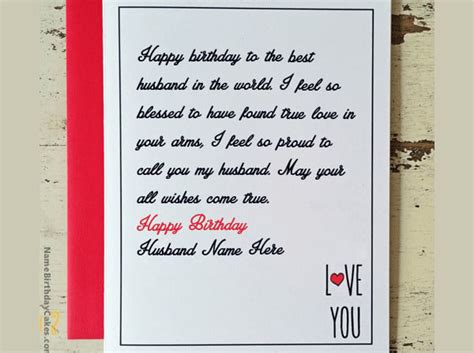 Happy birthday to the best
husband in the world. I feel so
blessed to have found true love in
your arms, I feel so proud to
call you my husband. May your
all wishes come true.
Happy Birthday
Husband Name Here
LOVE
YOU
NameBirthdayCakes.com